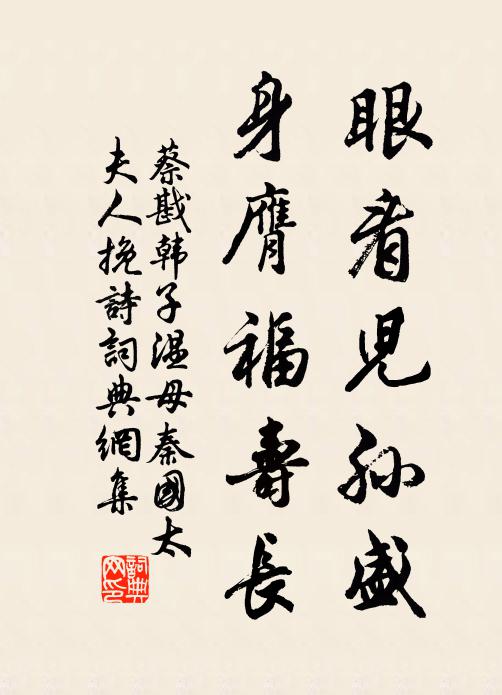 眼看児孙盛
身膺福壽長
蔡戡韩子温母秦國太
夫人挽詩詞典網集
詞典
网印